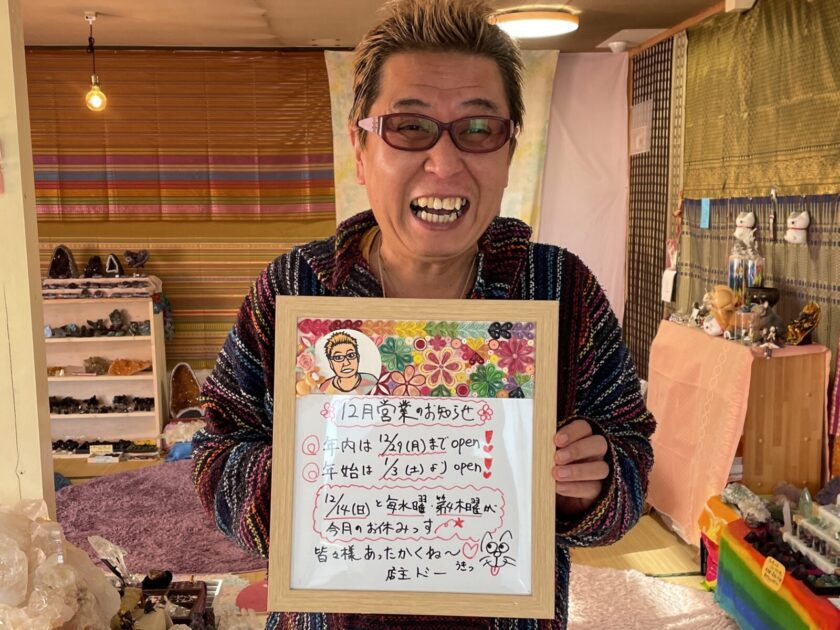 12月営業のお知らせ
年内は12/29(月)までopen
年始は1/3(土)よりopen
12/14(日)と毎水曜・第4木曜が
今月のお休みっす
皆々様あったかくね〜
うきっ
店主ドー